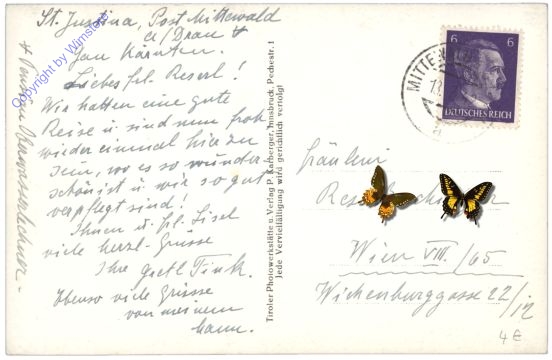 St. Justina, Post Mittewald
a/Drau
Gau Kärnten.
Liebes frl. Reserl!
Wir hatten eine gute
Reise u. sind nun froh
wieder einmal hier zu
sein, wo es so wunder-
schön ist u. wir so gut
verpflegt sind!
Ihnen u. frl. Lisel
viele herzl. Grüsse
Ihre Gretl Fink.
Ebenso viele Grüsse
von meinem
Mann.
+ Pension Oberwasserlechner -
Copyright by Wimsterer
Tiroler Photowerkstätte u. Verlag P. Karberger, Innsbruck, Pechestr. 1
Jede Vervielfältigung wird gerichtlich verfolgt
MITTEW
6 6
DEUTSCHES REICH
Fräulein
Wien VIII/65
Wickenburggasse 22/
4 E